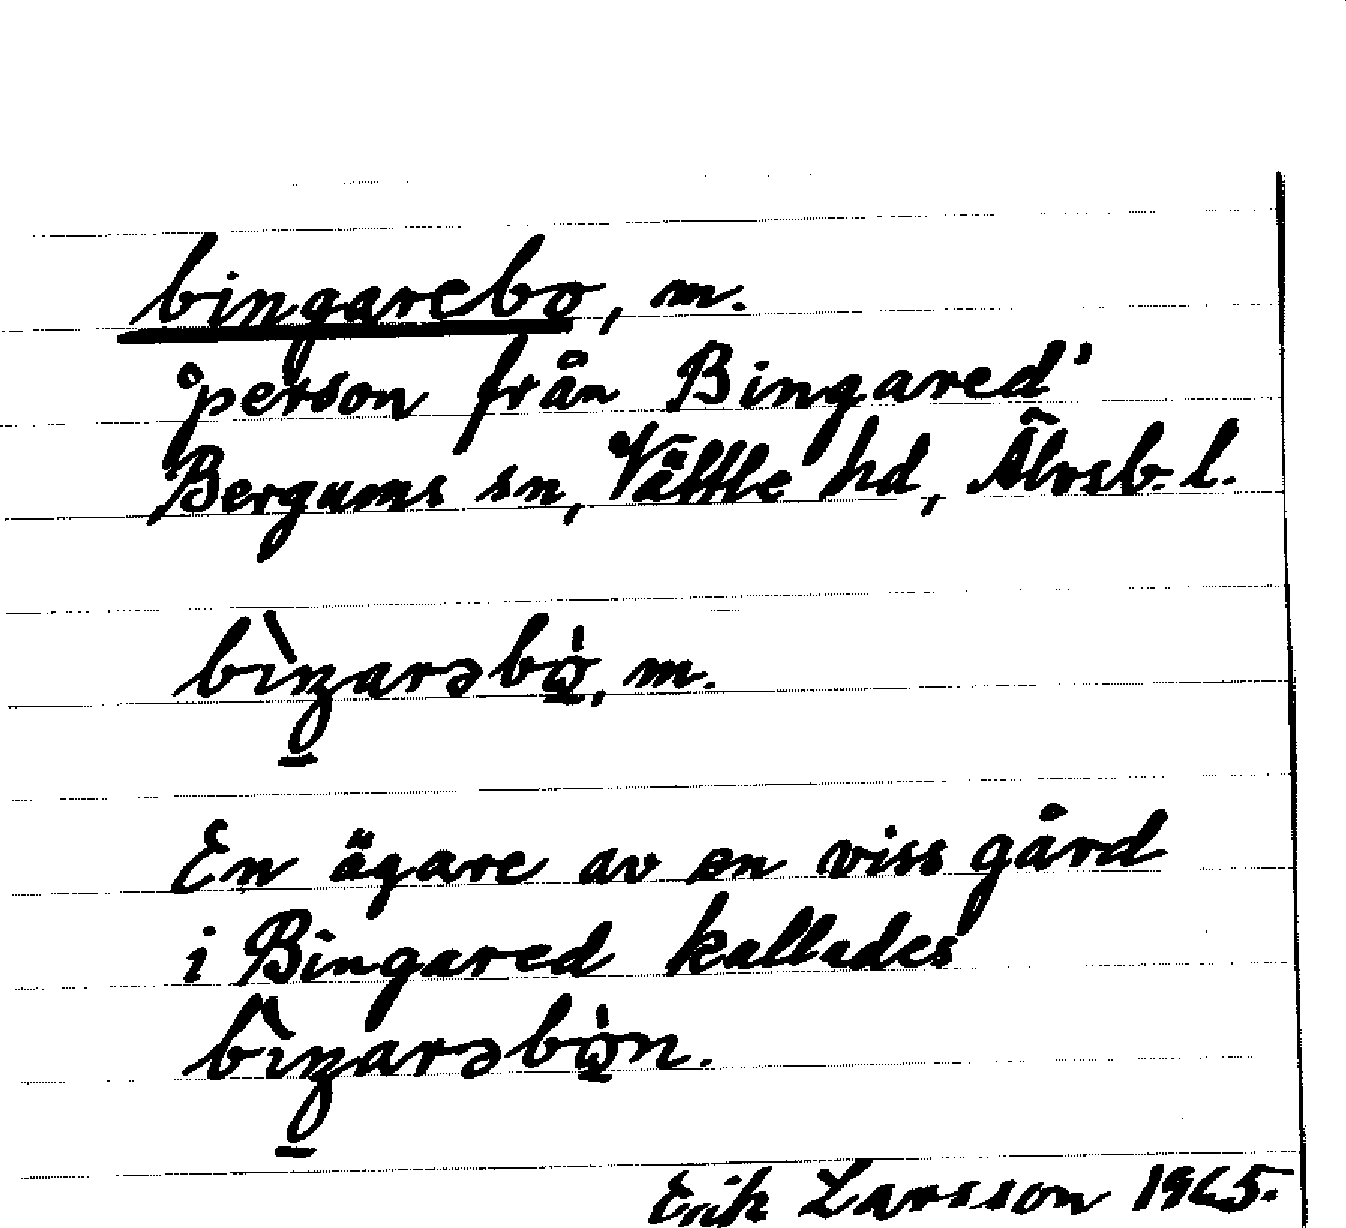 bingarebo, m.
'person från Bingared'
Bergums sn, Vättle hd, Älvsb. l.
bìŋarəbò̱, m.
En ägare av en viss gård
i Bingared kallades
bìŋarəbò̱n.
Erik Larsson 1965.